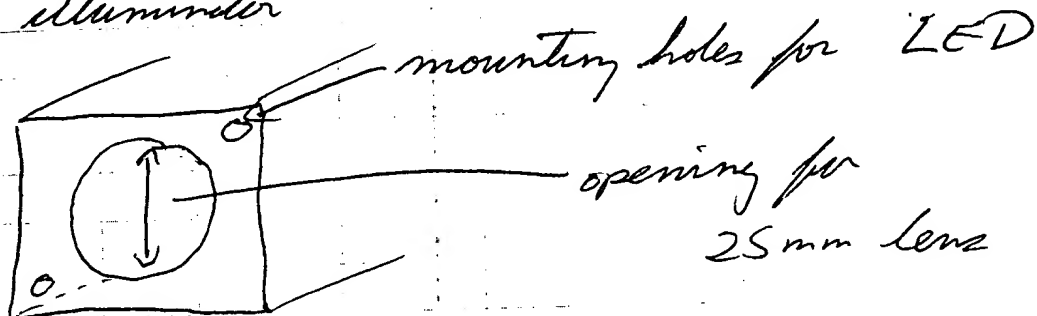 illuminator
mounting holes for LED
opening for
25mm lens